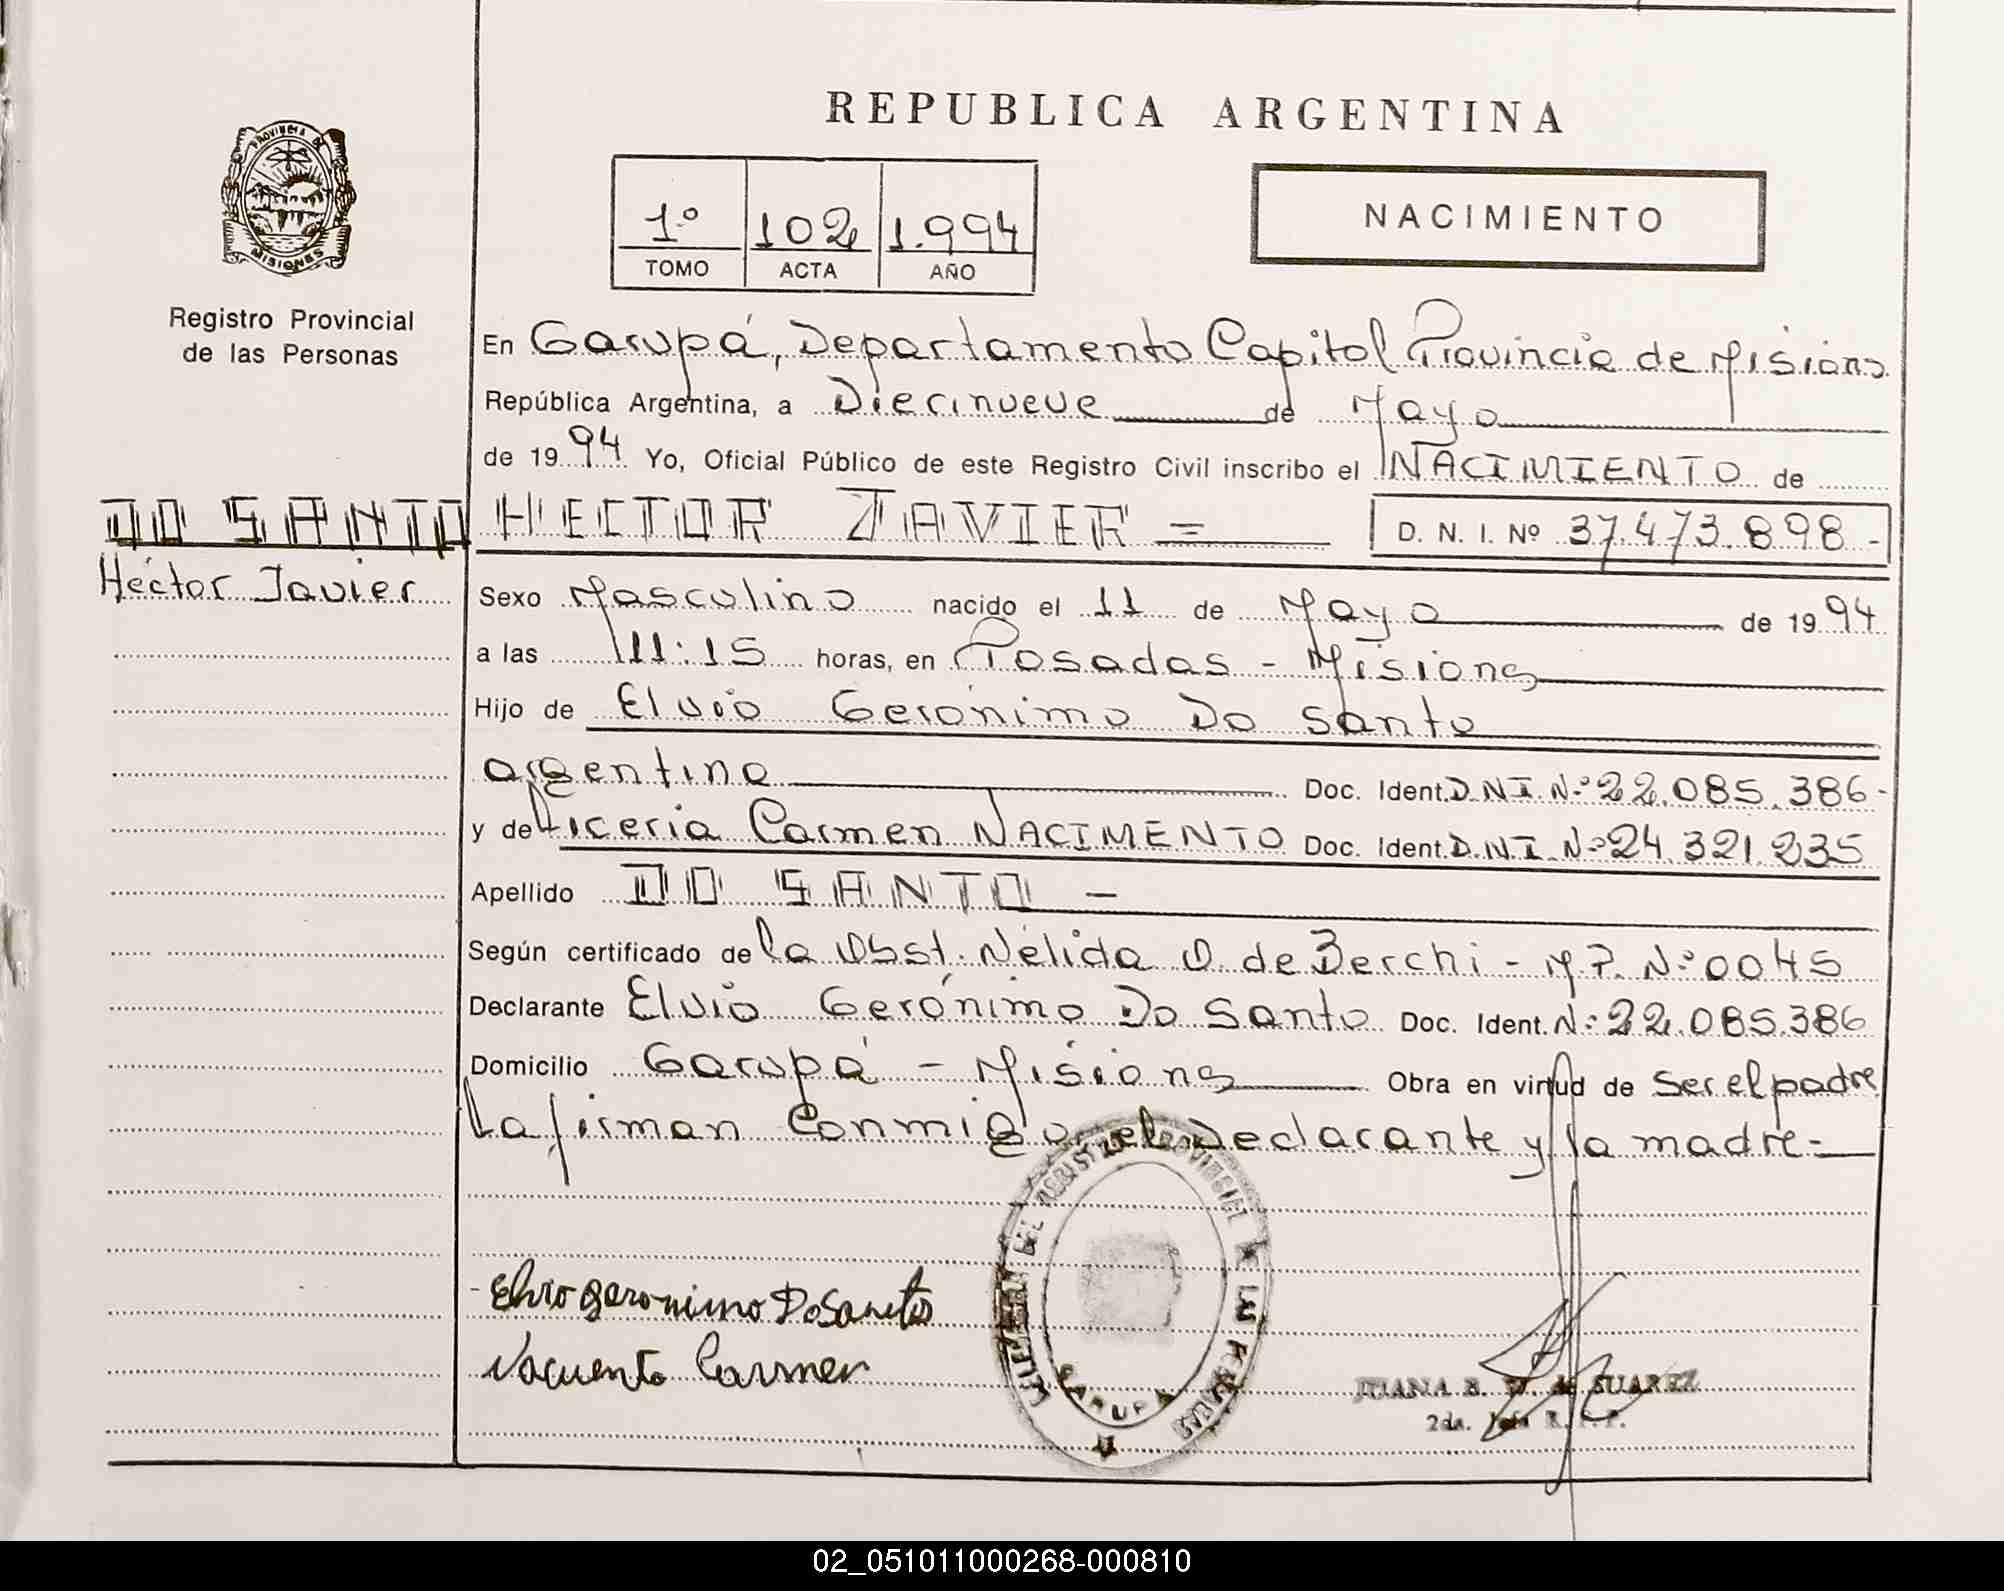 REPUBLICA ARGENTINA
PROVINCIA DE
MISIONES
Registro Provincial
de las Personas
1º 102 1.994
TOMO ACTA AÑO
NACIMIENTO
En Garupá, Departamento Capital Provincia de Misiones
República Argentina, a Diecinueve de Mayo
de 1994 Yo, Oficial Público de este Registro Civil inscribo el NACIMIENTO de
DO SANTO HECTOR JAVIER = D. N. I. Nº 37.473.898-
Héctor Javier
Sexo Masculino nacido el 11 de Mayo de 1994
a las 11:15 horas, en Posadas - Misiones
Hijo de Elvio Gerónimo Do Santo
argentina Doc. Ident. D.N.I. Nº 22.085.386-
y de Carmen NACIMENTO Doc. Ident. D.N.I. Nº 24.321.235
Apellido DO SANTO -
Según certificado de la Obst. Nélida O. de Berchi - M.P. Nº 0045
Declarante Elvio Gerónimo Do Santo Doc. Ident. Nº 22.085.386
Domicilio Garupá - Misiones Obra en virtud de ser el padre
La firman conmigo el declarante y la madre.-
Elvio Geronimo Do Santo
Nacimento Carmen
GARUPA
JUANA B. SUAREZ
2da. Jefa R. P. P.
02_051011000268-000810